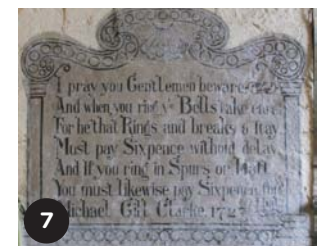 I pray you Gentlemen beware
And when you ring yᵉ Bells take care
For he that Rings and breaks a Stay
Must pay Sixpence without delay
And if you ring in Spurs or Hatt
You must likewise pay Sixpence for
Michael Gill Clarke 1727
7